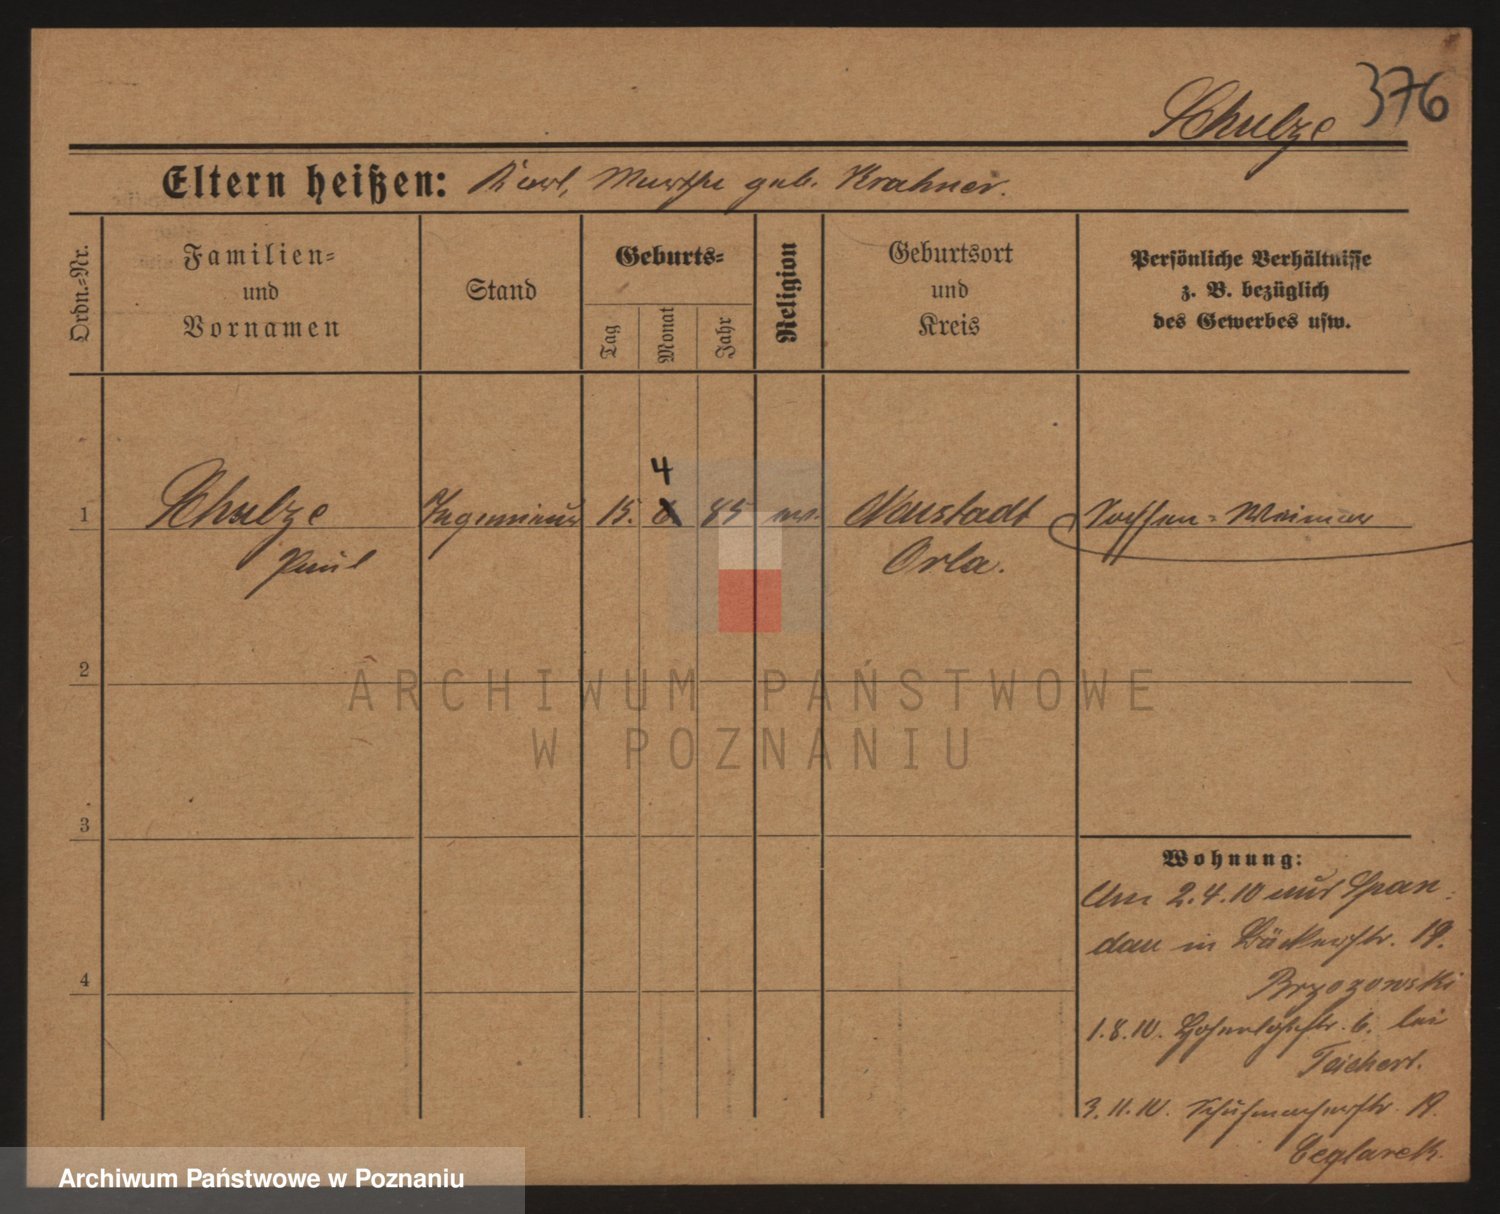 376
Schulze
Eltern heißen: Karl, Marthe geb. Krahner.
Ordn.-Nr.
Familien-
und
Vornamen
Stand
Geburts-
Tag
Monat
Jahr
Religion
Geburtsort
und
Kreis
Persönliche Verhältnisse
z. B. bezüglich
des Gewerbes usw.
4
1 Schulze Ingenieur 15. 6 85 ev. Neustadt Sachsen-Weimar
Paul Orla.
2
ARCHIWUM PAŃSTWOWE
W POZNANIU
3
Wohnung:
Am 2.4.10 aus Span-
dau in Bäckerstr. 19.
4
Brzozowski
1.8.10. Hohenlohestr. 6. bei
Teichert.
3.11.10. Schuhmacherstr. 19.
Ceglarek.
Archiwum Państwowe w Poznaniu